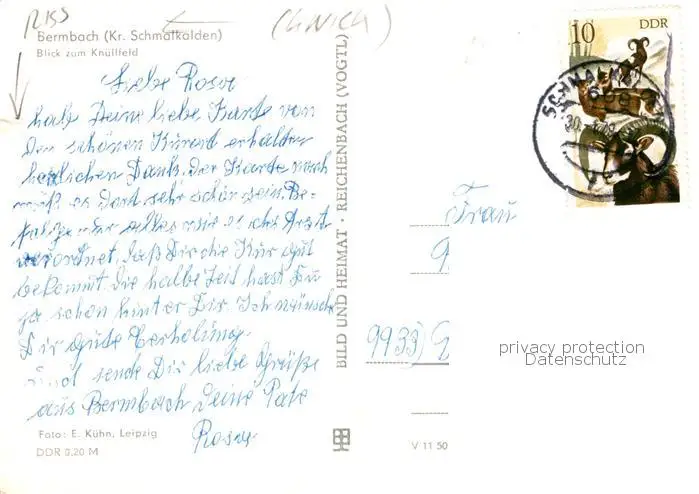 RISS
(KNICK)
Bermbach (Kr. Schmalkalden)
Blick zum Knüllfeld
Liebe Rosa
habe Deine liebe Karte von
der schönen Kurort erhalten
herzlichen Dank. Der Karte nach
muß es dort sehr schön sein. Be-
folge nur alles wie es der Arzt
verordnet, daß Dir die Kur gut
bekommt. Die halbe Zeit hast Du
ja schon hinter Dir. Ich wünsche
Dir gute Erholung.
Und sende Dir liebe Grüße
aus Bermbach Deine Pate
Rosa
Foto: E. Kühn, Leipzig
DDR 0,20 M
BILD UND HEIMAT · REICHENBACH (VOGTL)
V 11 50
10
DDR
Frau
9933)
privacy protection
Datenschutz